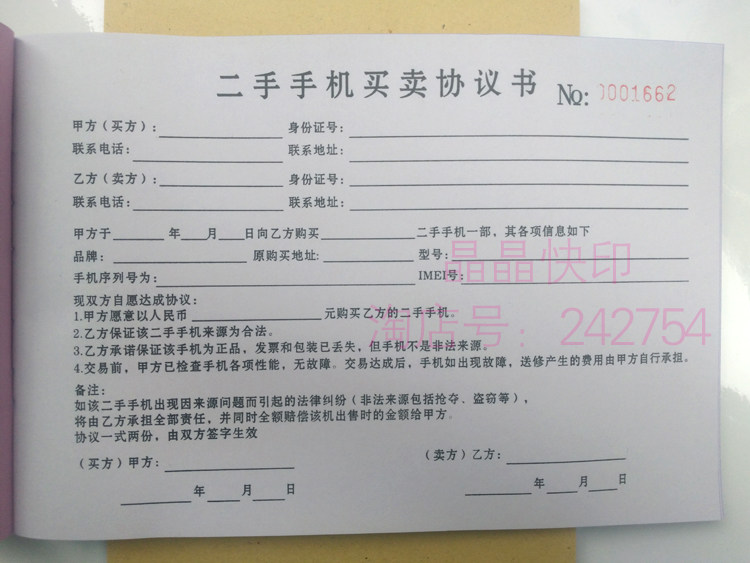 二手手机买卖协议书 No: 0001662
甲方（买方）: 身份证号:
联系电话: 联系地址:
乙方（卖方）: 身份证号:
联系电话: 联系地址:
甲方于 年 月 日向乙方购买 二手手机一部，其各项信息如下
品牌: 原购买地址: 型号:
手机序列号为: IMEI号:
晶晶快印
现双方自愿达成协议:
1.甲方愿意以人民币 元购买乙方的二手手机。
淘店号: 242754
2.乙方保证该二手手机来源为合法。
3.乙方承诺保证该手机为正品，发票和包装已丢失，但手机不是非法来源。
4.交易前，甲方已检查手机各项性能，无故障。交易达成后，手机如出现故障，送修产生的费用由甲方自行承担。
备注:
如该二手手机出现因来源问题而引起的法律纠纷（非法来源包括抢夺、盗窃等），
将由乙方承担全部责任，并同时全额赔偿该机出售时的金额给甲方。
协议一式两份，由双方签字生效
（买方）甲方: （卖方）乙方:
年 月 日 年 月 日